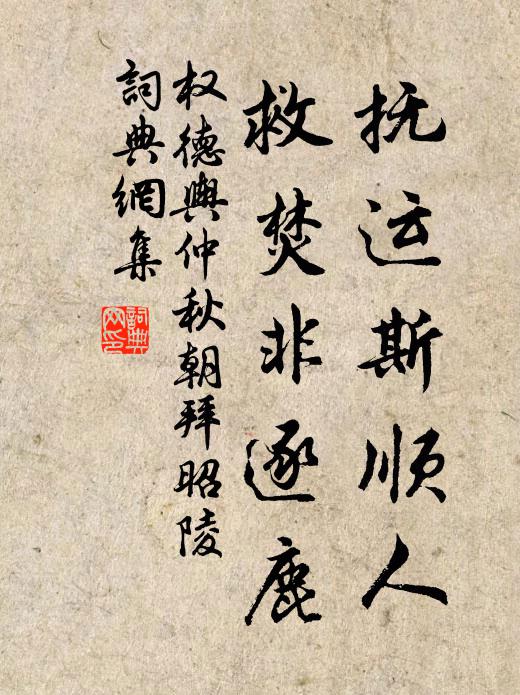 抚运斯顺人
救焚非逐鹿
权德舆仲秋朝拜昭陵
詞典網集
詞典
网印